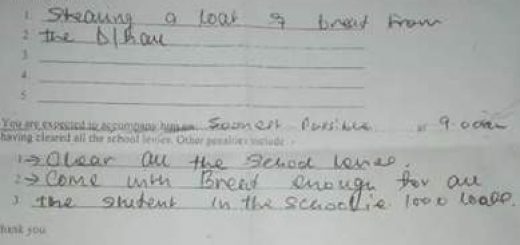 1 Stealing a loaf of bread from
2 the D/hall
3
4
5
You are expected to accompany him on Soonest Possible at 9.00am
having cleared all the school levies. Other penalties include :-
1 → Clear all the School levies.
2 → Come with Bread enough for all
3 the student in the School i.e. 1000 loaf.
thank you